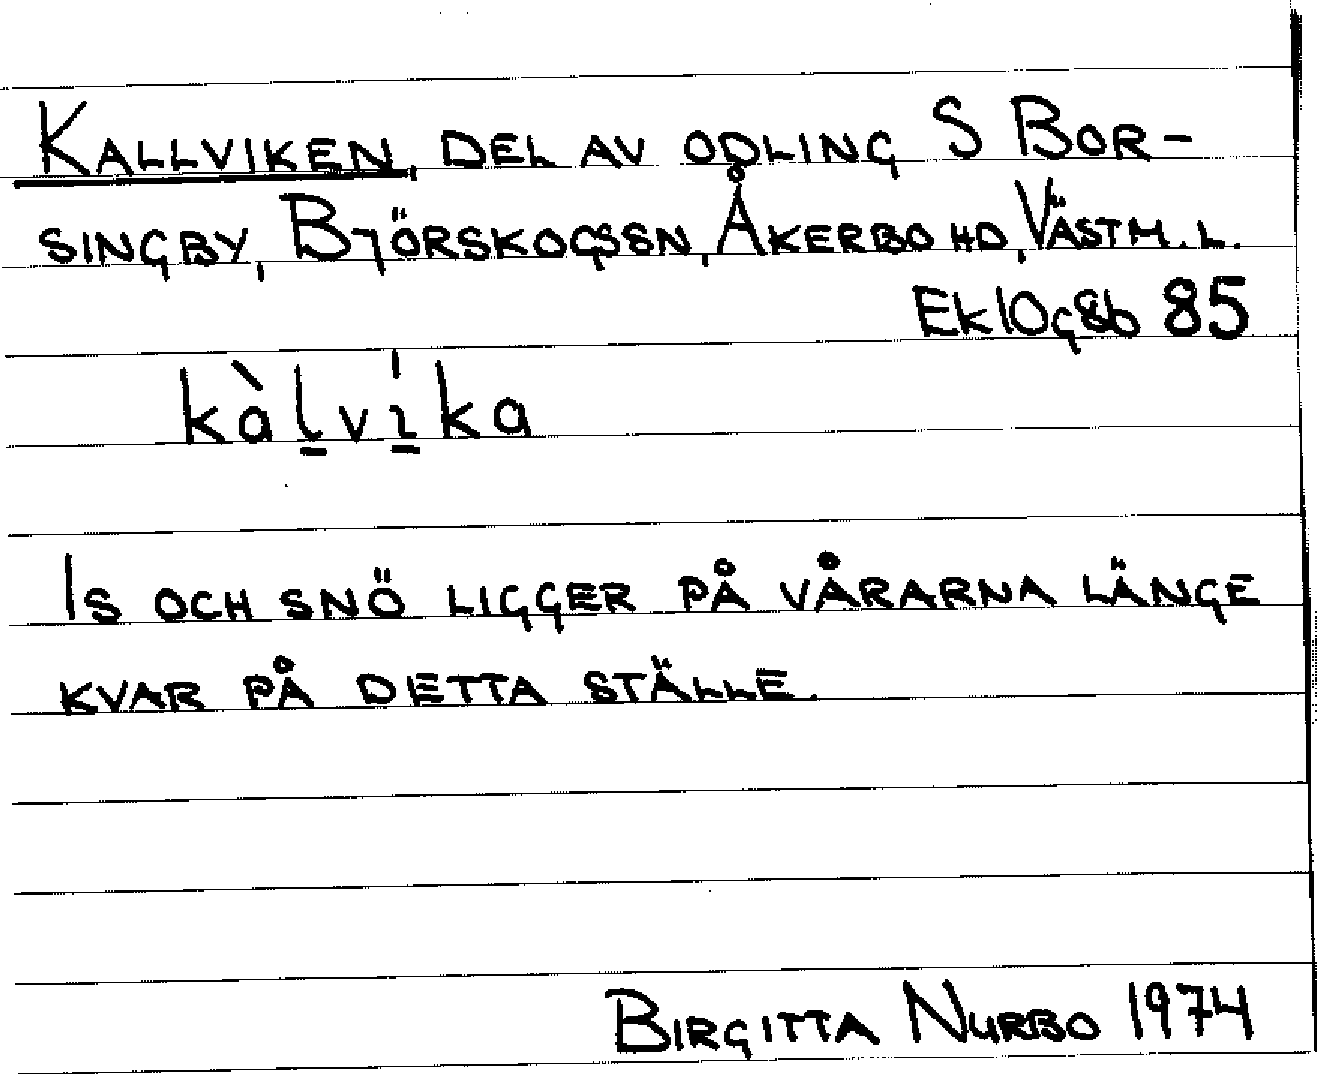 KALLVIKEN, DEL AV ODLING S BOR-
SINGBY, BJÖRSKOGSSN, ÅKERBO HD, VÄSTM. L.
Ek 10g8b 85
kàl̠vı̠̍ka
IS OCH SNÖ LIGGER PÅ VÅRARNA LÄNGE
KVAR PÅ DETTA STÄLLE.
BIRGITTA NURBO 1974